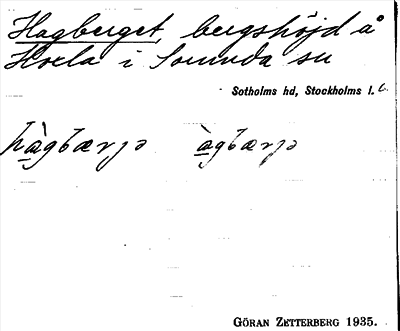 Hagberget, bergshöjd å
Hoxla i Sorunda sn
Sotholms hd, Stockholms l.
hàgbærjə àgbærjə
GÖRAN ZETTERBERG 1935.